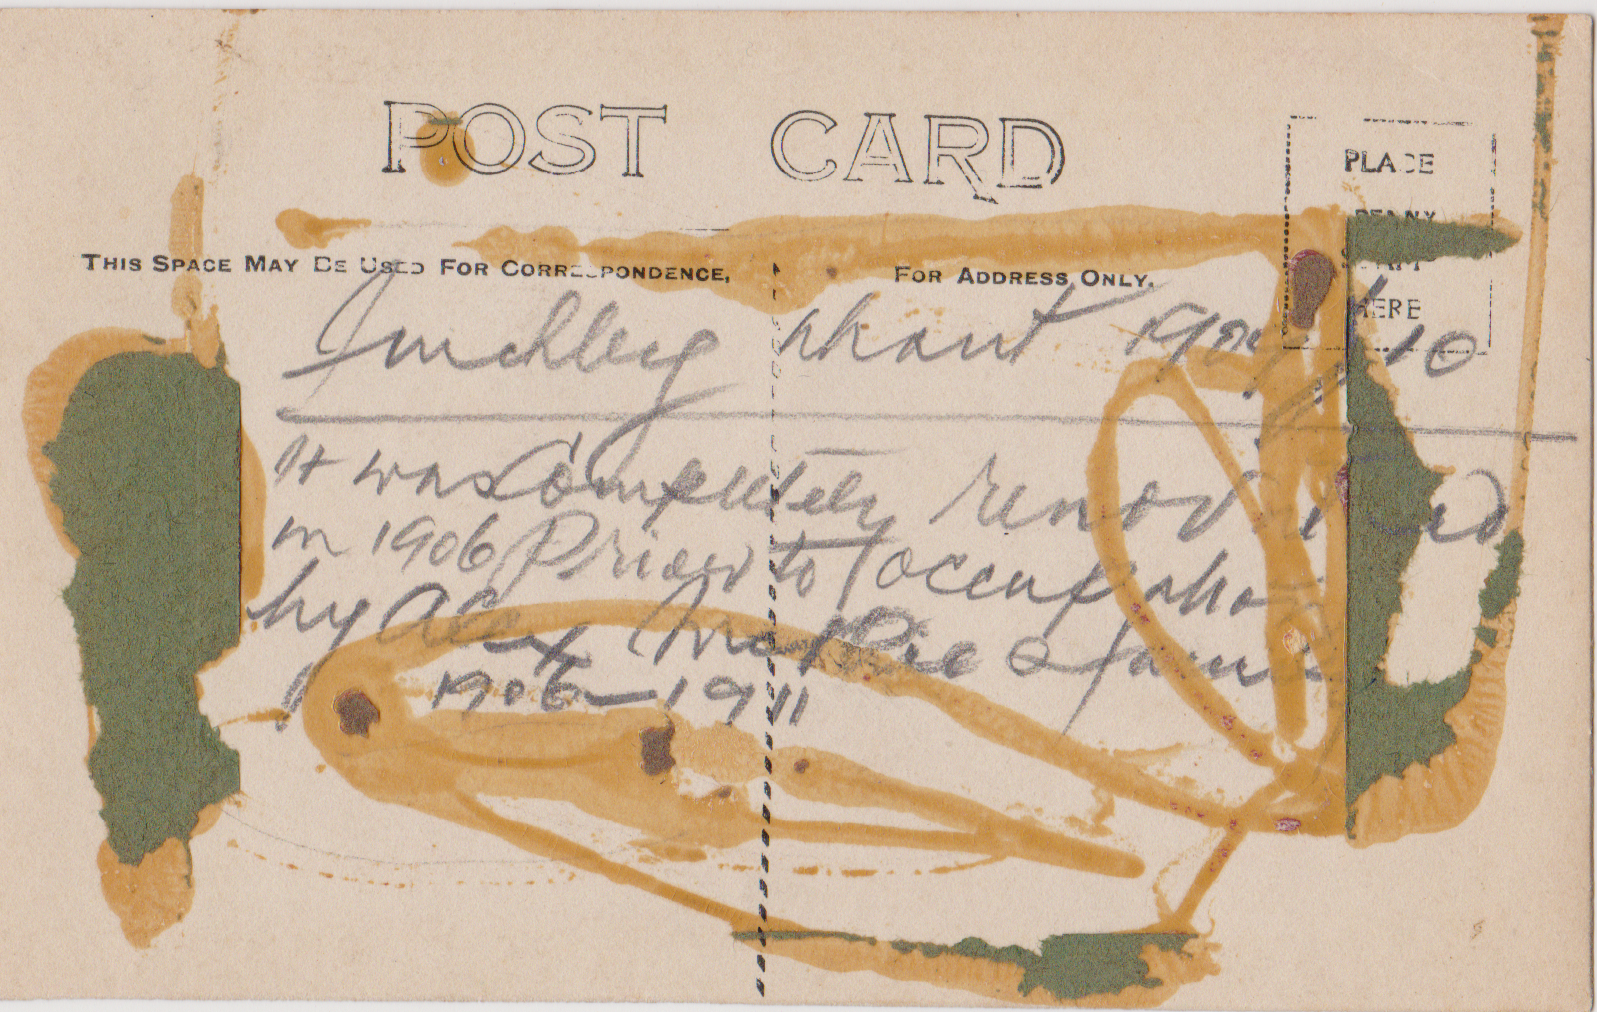 POST CARD
PLACE
PENNY
STAMP
HERE
THIS SPACE MAY BE USED FOR CORRESPONDENCE,
FOR ADDRESS ONLY.
about 1909 10
It was Completely renovated
in 1906 Prior to occupation
by Alex McPhie & family
1906-1911